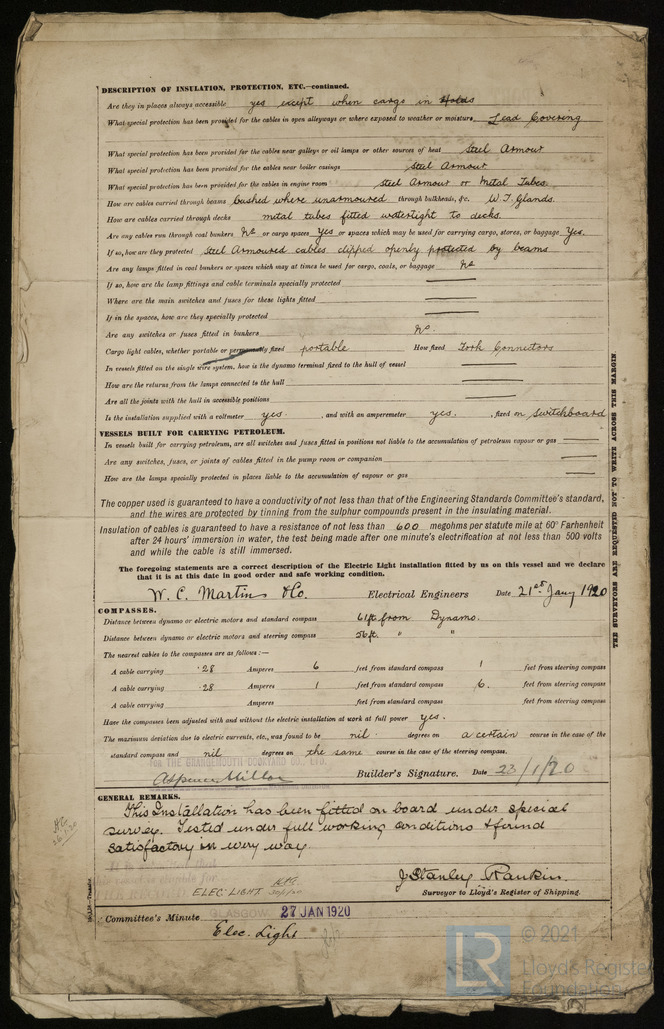 DESCRIPTION OF INSULATION, PROTECTION, ETC.—continued.
Are they in places always accessible yes except when cargo in Holds
What special protection has been provided for the cables in open alleyways or where exposed to weather or moisture Lead Covering
What special protection has been provided for the cables near galleys or oil lamps or other sources of heat Steel Armour
What special protection has been provided for the cables near boiler casings Steel Armour
What special protection has been provided for the cables in engine room Steel Armour or Metal Tubes
How are cables carried through beams bushed where unarmoured through bulkheads, &c. W.T. Glands.
How are cables carried through decks metal tubes fitted watertight to decks.
Are any cables run through coal bunkers No or cargo spaces Yes or spaces which may be used for carrying cargo, stores, or baggage Yes.
If so, how are they protected Steel Armoured cables clipped openly protected by beams
Are any lamps fitted in coal bunkers or spaces which may at times be used for cargo, coals, or baggage No
If so, how are the lamp fittings and cable terminals specially protected
Where are the main switches and fuses for these lights fitted
If in the spaces, how are they specially protected
Are any switches or fuses fitted in bunkers No.
Cargo light cables, whether portable or permanently fixed portable How fixed Fork Connectors
In vessels fitted on the single wire system, how is the dynamo terminal fixed to the hull of vessel
How are the returns from the lamps connected to the hull
Are all the joints with the hull in accessible positions
Is the installation supplied with a voltmeter yes. , and with an amperemeter yes. , fixed on Switchboard
VESSELS BUILT FOR CARRYING PETROLEUM.
In vessels built for carrying petroleum, are all switches and fuses fitted in positions not liable to the accumulation of petroleum vapour or gas
Are any switches, fuses, or joints of cables fitted in the pump room or companion
How are the lamps specially protected in places liable to the accumulation of vapour or gas
The copper used is guaranteed to have a conductivity of not less than that of the Engineering Standards Committee's standard,
and the wires are protected by tinning from the sulphur compounds present in the insulating material.
Insulation of cables is guaranteed to have a resistance of not less than 600 megohms per statute mile at 60° Farhenheit
after 24 hours' immersion in water, the test being made after one minute's electrification at not less than 500 volts
and while the cable is still immersed.
The foregoing statements are a correct description of the Electric Light installation fitted by us on this vessel and we declare
that it is at this date in good order and safe working condition.
W. C. Martin & Co. Electrical Engineers Date 21st Jany 1920
COMPASSES.
Distance between dynamo or electric motors and standard compass 61ft from Dynamo.
Distance between dynamo or electric motors and steering compass 56ft. " "
The nearest cables to the compasses are as follows:—
A cable carrying .28 Amperes 6 feet from standard compass 1 feet from steering compass
A cable carrying .28 Amperes 1 feet from standard compass 6. feet from steering compass
A cable carrying Amperes feet from standard compass feet from steering compass
Have the compasses been adjusted with and without the electric installation at work at full power yes.
The maximum deviation due to electric currents, etc., was found to be nil degrees on a certain course in the case of the
standard compass and nil degrees on the same course in the case of the steering compass.
FOR THE GRANGEMOUTH DOCKYARD CO., LTD.
Builder's Signature. Date 23/1/20
GENERAL REMARKS.
This Installation has been fitted on board under special
survey. Tested under full working conditions & found
satisfactory in every way.
ELEC. LIGHT.
J Stanley Rankin.
Surveyor to Lloyd's Register of Shipping.
Committee's Minute GLASGOW. 27 JAN 1920
Elec. Light
THE SURVEYORS ARE REQUESTED NOT TO WRITE ACROSS THIS MARGIN
LR
© 2021
Lloyd's Register
Foundation